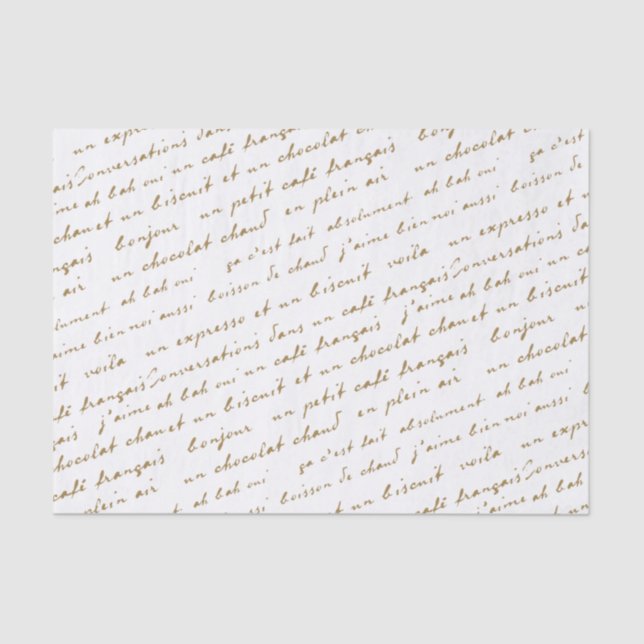 un expr
ais Conversations dans
aime ah bah oui un café français
chau et un biscuit et un chocolat chau
nçais bonjour un petit café français bonjo
air un chocolat chaud en plein air un chocolat c
lument ah bah oui ça c'est fait absolument ah bah oui ça c'est
aime bien noi aussi boisson de chaud j'aime bien noi aussi boisson de
it voila un expresso et un biscuit voila un expresso et u
fé français Conversations dans un café français Conversations dans
ais j'aime ah bah oui un café français j'aime ah bah oui un ca
chocolat chau et un biscuit et un chocolat chau et un biscuit
café français bonjour un petit café français bonjour u
plein air un chocolat chaud en plein air un chocolat
ah bah oui ça c'est fait absolument ah bah oui
ssi boisson de chaud j'aime bien noi aussi
t un biscuit voila un expres
café français Conversa
j'aime ah bah
un